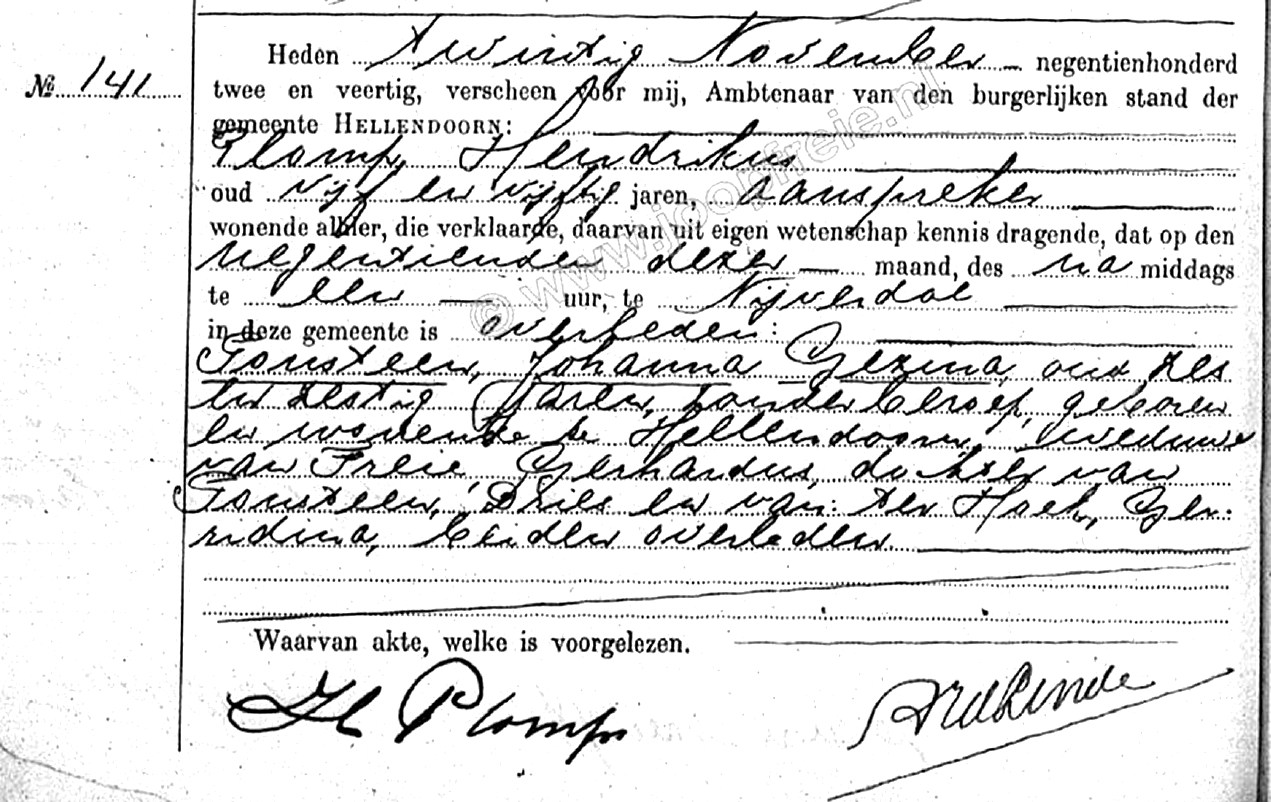 Heden twintig November negentienhonderd
№ 141
twee en veertig, verscheen voor mij, Ambtenaar van den burgerlijken stand der
gemeente HELLENDOORN:
Plomp, Hendrikus
oud vijf en vijftig jaren, aanspreker
wonende alhier, die verklaarde, daarvan uit eigen wetenschap kennis dragende, dat op den
negentienden dezer maand, des na middags
te een uur, te Nijverdal
in deze gemeente is overleden:
Fonsteen, Johanna Gezina, oud zes
en zestig jaren, zonder beroep, geboren
en wonende te Hellendoorn, weduwe
van Freie Gerhardus, dochter van
Fonsteen, Dries en van ter Hoek, Ger-
ridina, beiden overleden.
Waarvan akte, welke is voorgelezen.
H Plomp
© www.joopfreie.nl